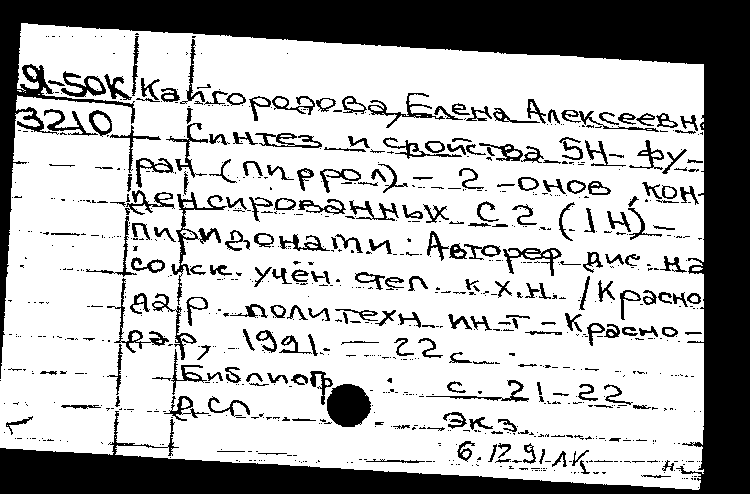 Я-50К Кайгородова, Елена Алексеевна
3210 Синтез и свойства 5Н-фу-
ран (пиррол)-2-онов, кон-
денсированных с 2 (1Н)-
пиридонами: Автореф дис. на
соиск. учён. степ. к.х.н. / Красно
дар. политехн ин-т - Красно-
дар, 1991. - 22 с.
Библиогр : с. 21-22
ДСП. экз.
6.12.91 ЛК